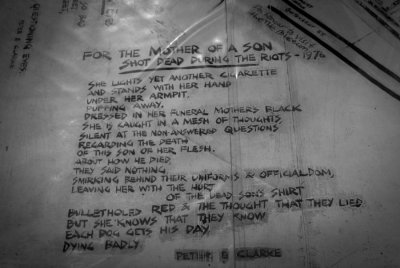 FOR THE MOTHER OF A SON
SHOT DEAD DURING THE RIOTS - 1976
SHE LIGHTS YET ANOTHER CIGARETTE
AND STANDS WITH HER HAND
UNDER HER ARMPIT.
PUFFING AWAY.
DRESSED IN HER FUNERAL MOTHERS BLACK
SHE IS CAUGHT IN A MESH OF THOUGHTS,
SILENT AT THE NON-ANSWERED QUESTIONS
REGARDING THE DEATH
OF THIS SON OF HER FLESH.
ABOUT HOW HE DIED,
THEY SAID NOTHING
SMIRKING BEHIND THEIR UNIFORMS & OFFICIALDOM,
LEAVING HER WITH THE HURT
OF THE DEAD SON'S SHIRT
BULLETHOLED RED & THE THOUGHT THAT THEY LIED.
BUT SHE KNOWS THAT THEY KNOW
EACH DOG GETS HIS DAY,
DYING BADLY
PETER E CLARKE